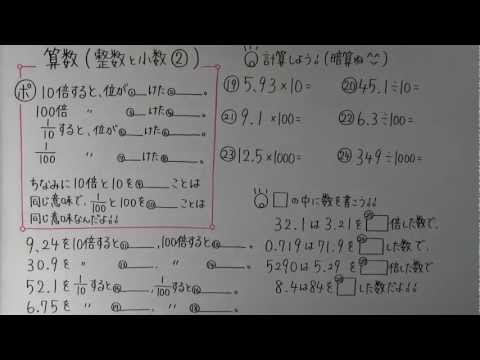 算数(整数と小数②)
ポ 10倍すると、位が___けた___。
100倍 〃 ___けた___。
1/10すると、位が___けた___。
1/100 〃 ___けた___。
ちなみに10倍と10を___ことは
同じ意味で、1/100と100を___ことは
同じ意味なんだよ!!
9.24を10倍すると___、100倍すると___。
30.9を 〃 ___、 〃 ___。
52.1を1/10すると___、1/100すると___。
6.75を 〃 ⑰___、 〃 ⑱___。
計算しよう!(暗算ね^^)
⑲5.93×10=
⑳45.1÷10=
㉑9.1×100=
㉒6.3÷100=
㉓12.5×1000=
㉔349÷1000=
□の中に数を書こう!!
32.1は3.21を□倍した数で、
0.719は71.9を□した数で、
5290は5.29を□倍した数で
8.4は84を□した数だよ!!